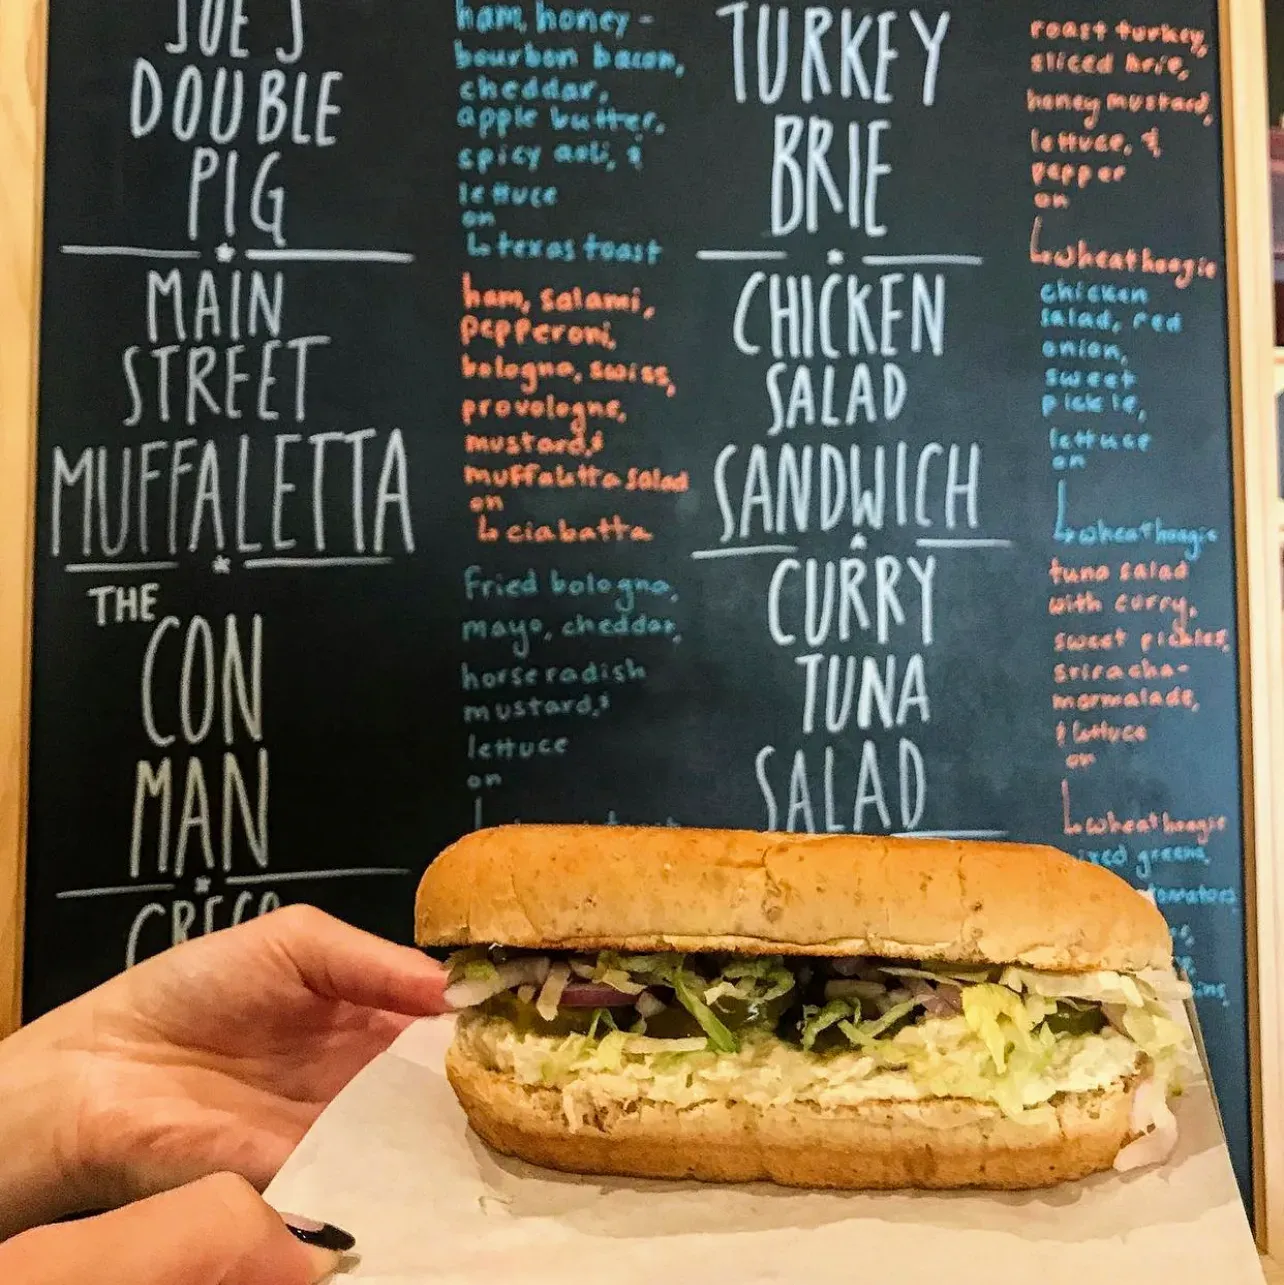 JOE'S
DOUBLE
PIG
ham, honey -
bourbon bacon,
cheddar,
apple butter,
spicy aoli, &
lettuce
on
↳ texas toast
MAIN
STREET
MUFFALETTA
ham, salami,
pepperoni,
bologna, swiss,
provologne,
mustard, &
muffaletta salad
on
↳ ciabatta
THE
CON
MAN
Fried bologna,
mayo, cheddar,
horseradish
mustard, &
lettuce
on
TURKEY
BRIE
roast turkey,
sliced brie,
honey mustard,
lettuce, &
pepper
on
↳ wheat hoagie
CHICKEN
SALAD
SANDWICH
chicken
salad, red
onion,
sweet
pickle,
lettuce
on
↳ wheat hoagie
CURRY
TUNA
SALAD
tuna salad
with curry,
sweet pickles,
sriracha-
marmalade,
& lettuce
on
↳ wheat hoagie
greens,
tomatoes